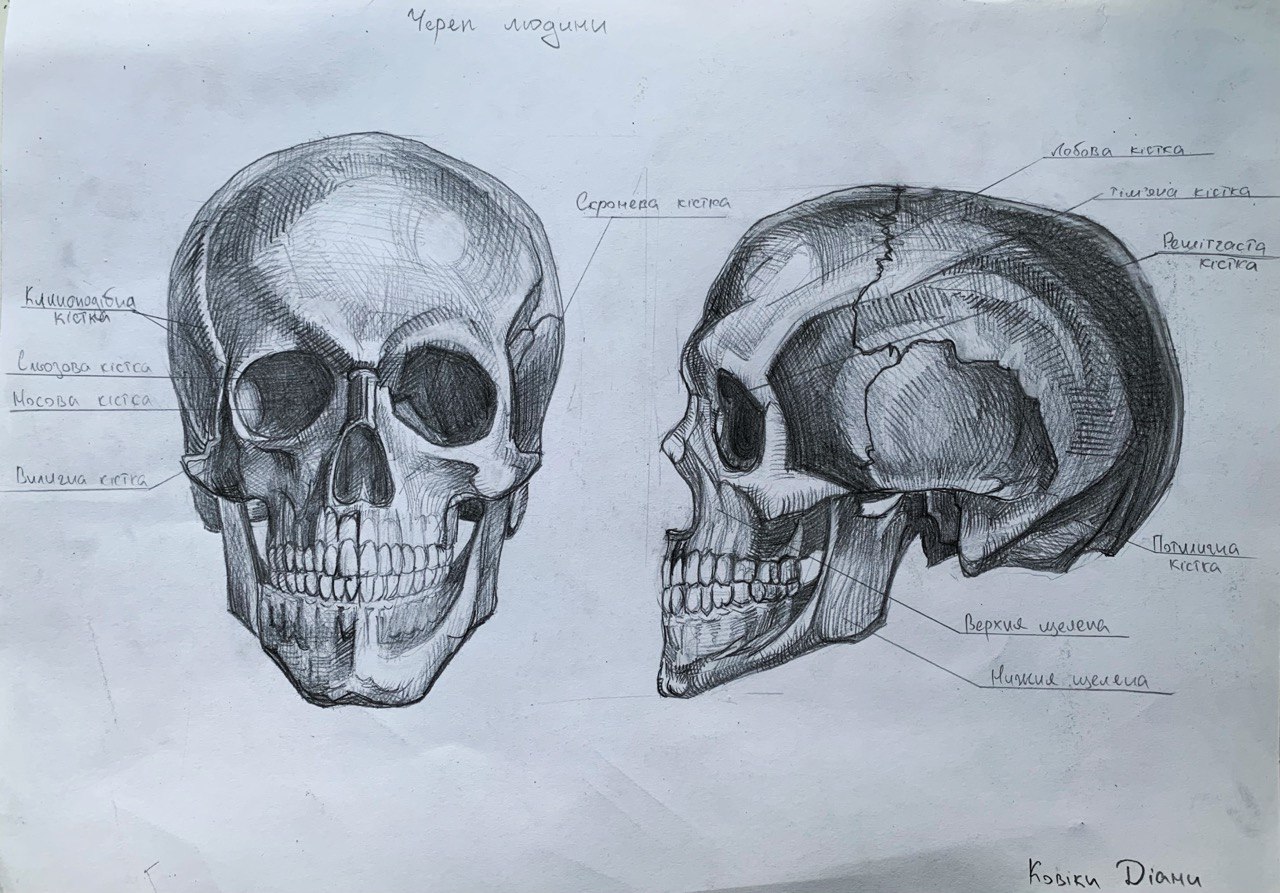 Череп людини
Скронева кістка
Клиноподібна
кістка
Слізова кістка
Носова кістка
Вилична кістка
Лобова кістка
Тім'яна кістка
Решітчаста
кістка
Потилична
кістка
Верхня щелепа
Нижня щелепа
Ковіки Діани